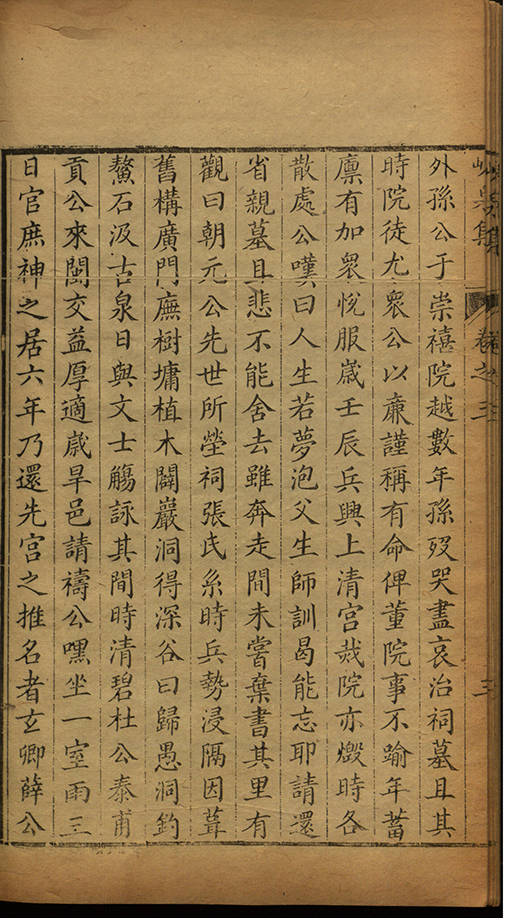 峴泉集 卷之三 三
外孫公于崇禧院越數年孫歿哭盡哀治祠墓且其
時院徒尤衆公以亷謹稱有命俾董院事不踰年蓄
廪有加衆悅服嵗壬辰兵興上清宫烖院亦燬時各
散處公嘆曰人生若夢泡父生師訓曷能忘耶請還
省親墓且悲不能舍去雖奔走間未嘗棄書其里有
觀曰朝元公先世所塋祠張氏糸時兵勢浸隔因葺
舊構廣門廡樹墉植木闢巖洞得深谷曰歸愚洞釣
鰲石汲古泉日與文士觴詠其間時清碧杜公泰甫
貢公來閩交益厚適嵗旱邑請禱公嘿坐一室雨三
日官庶神之居六年乃還先宫之推名者玄卿薛公